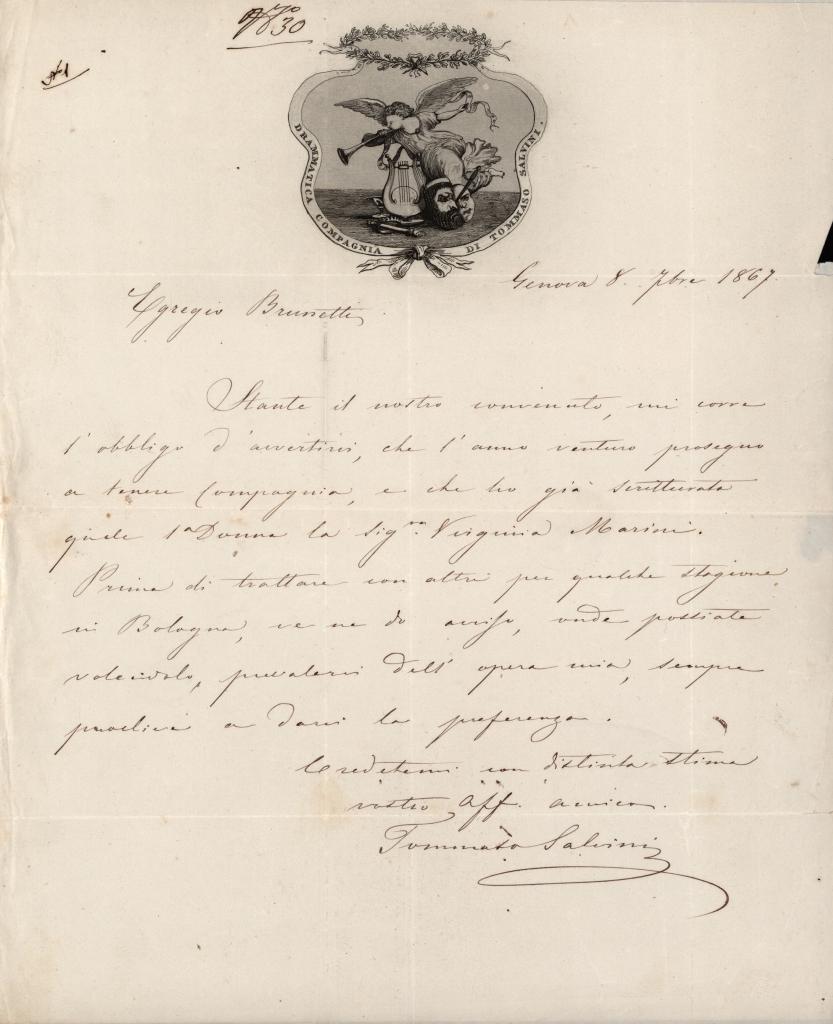 N° 30
DRAMMATICA COMPAGNIA DI TOMMASO SALVINI.
Genova 8. 7bre 1867.
Egregio Brunetti
Stante il nostro convenuto, mi corre
l'obbligo d'avvertirvi, che l'anno venturo proseguo
a tenere Compagnia, e che ho già scritturata
quale 1a Donna la sigra. Virginia Marini.
Prima di trattare con altri per qualche stagione
in Bologna, ve ne do avviso, onde possiate
volendolo, prevalervi dell'opera mia, sempre
proclive a darvi la preferenza.
Credetemi con distinta stima
vostro aff. amico.
Tommaso Salvini